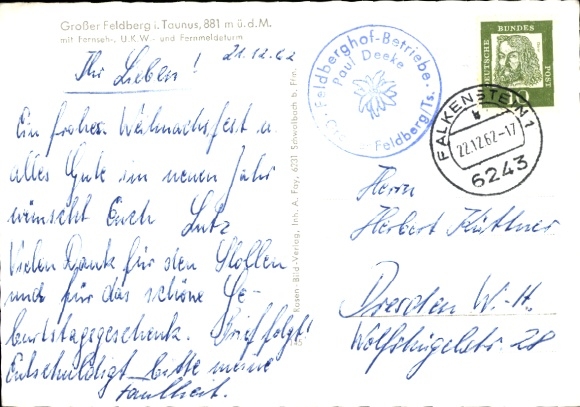 Großer Feldberg i. Taunus, 881 m ü. d. M.
mit Fernseh-, U.K.W- und Fernmeldeturm
21.12.62
Ihr Lieben!
Ein frohes Weihnachsfest u.
alles Gute im neuen Jahr
wünscht Euch Lutz
Vielen Dank für den Stollen
und für das schöne Ge-
burtstagsgeschenk. Brief folgt!
Entschuldigt bitte meine
Faulheit.
Rosen-Bild-Verlag, Inh. A. Fay, 6231 Schwalbach b. Ffm.
Feldberghof-Betriebe
Paul Deeke
Feldberg/Ts.
DEUTSCHE BUNDES POST
10
FALKENSTEIN 1
b
22.12.62-17
6243
Herrn
Herbert Küttner
Dresden W.-H.
Wolfshügelstr. 28